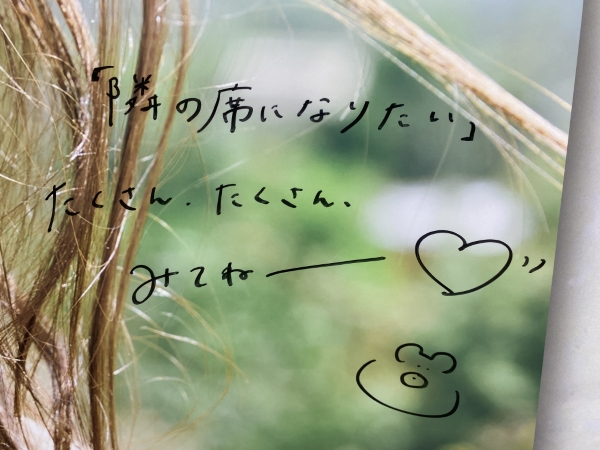 「隣の席になりたい」
たくさん.たくさん、
みてねー♡